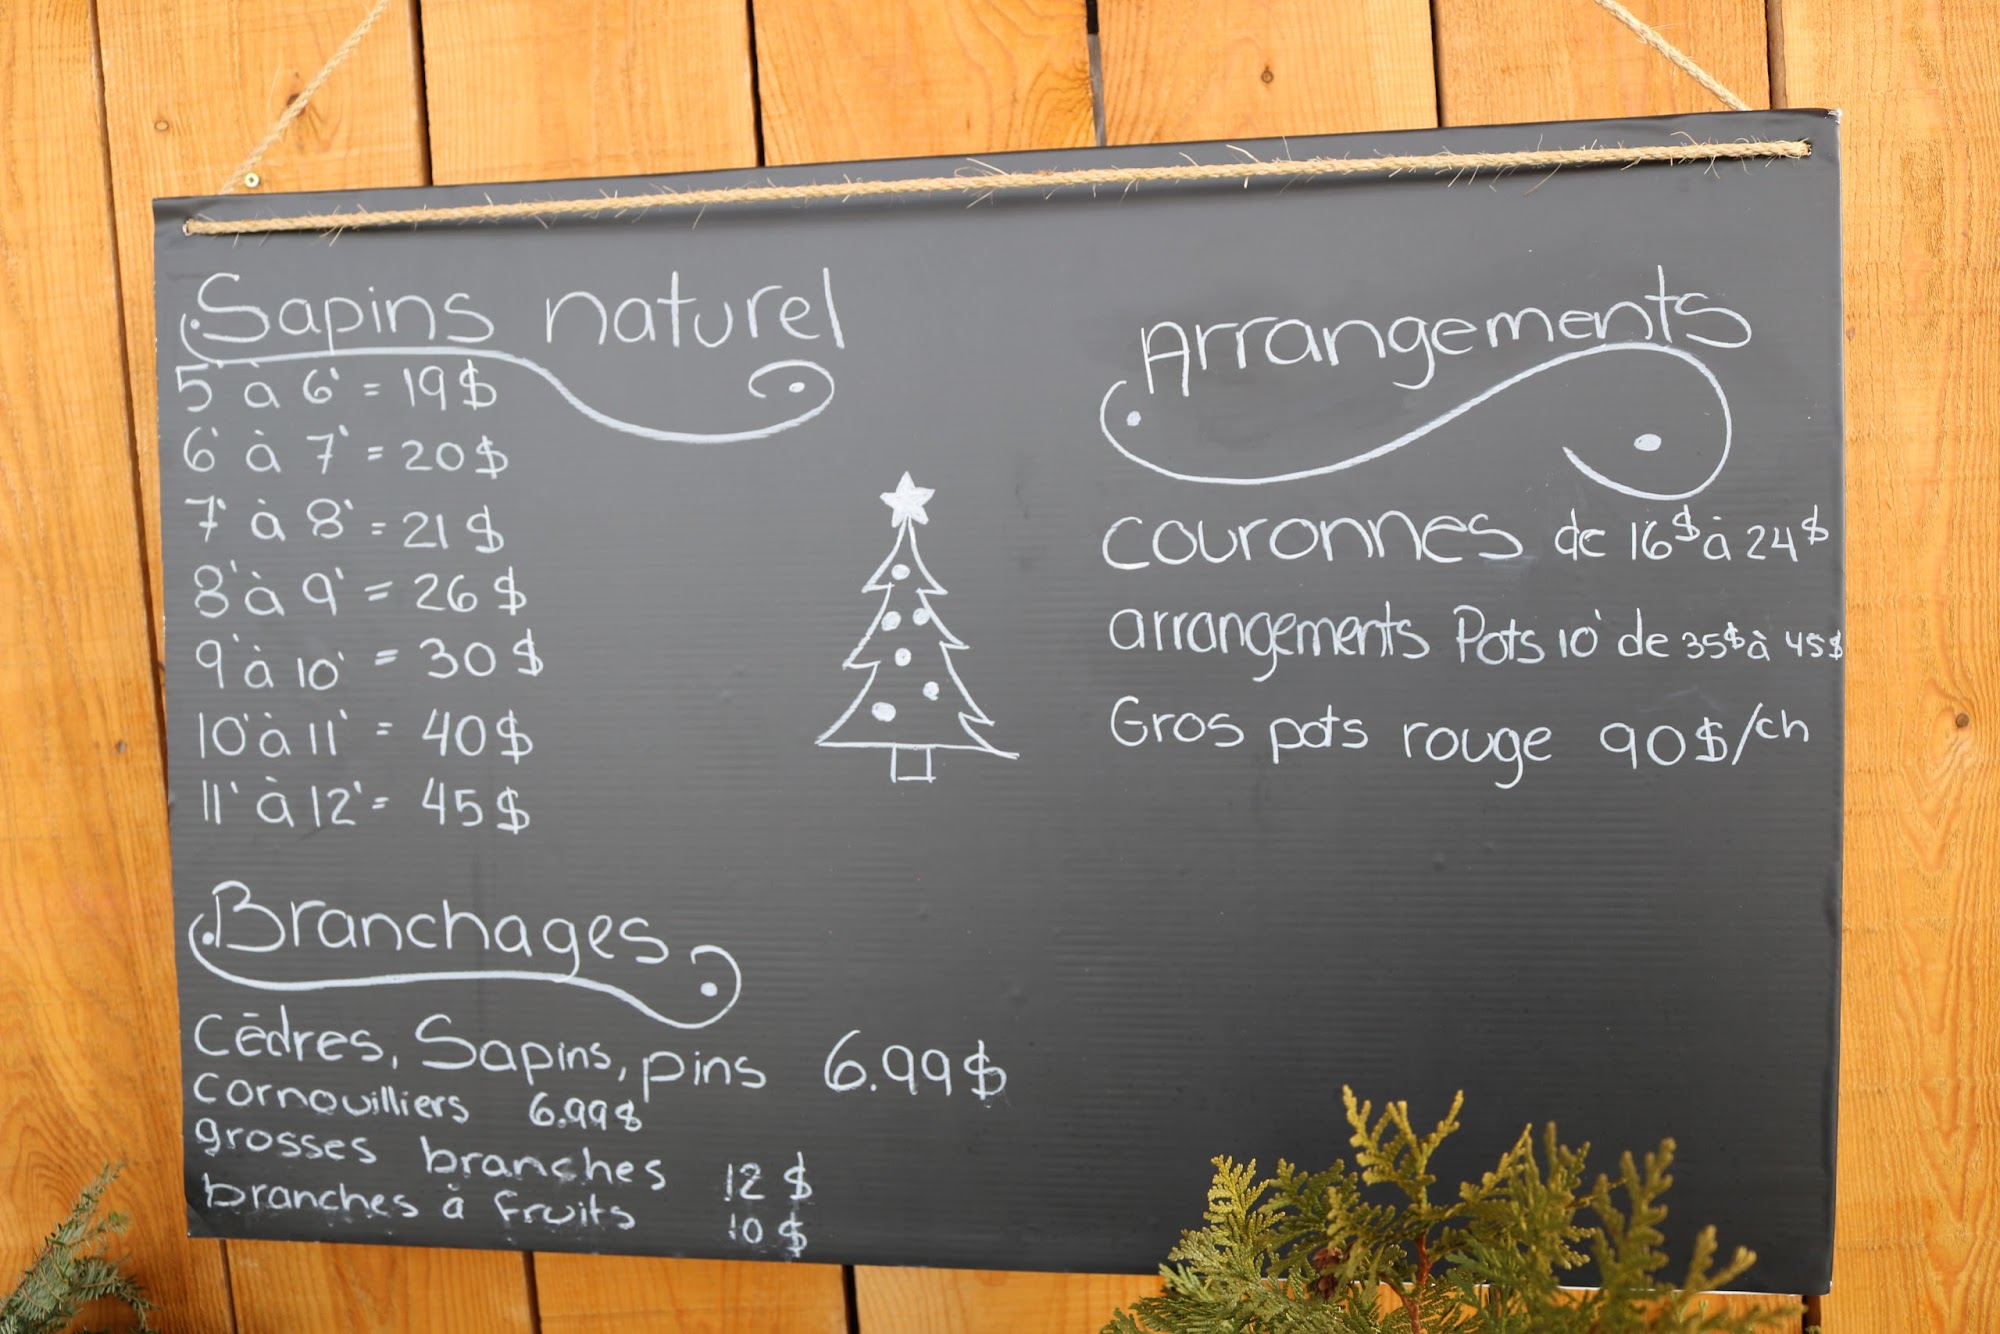 Sapins naturel
5' à 6' = 19$
6' à 7' = 20$
7' à 8' = 21$
8' à 9' = 26$
9' à 10' = 30$
10' à 11' = 40$
11' à 12' = 45$
Branchages
Cèdres, Sapins, pins 6.99$
Cornouilliers 6.99$
grosses branches 12$
branches à fruits 10$
Arrangements
couronnes de 16$ à 24$
arrangements Pots 10' de 35$ à 45$
Gros pots rouge 90$/ch